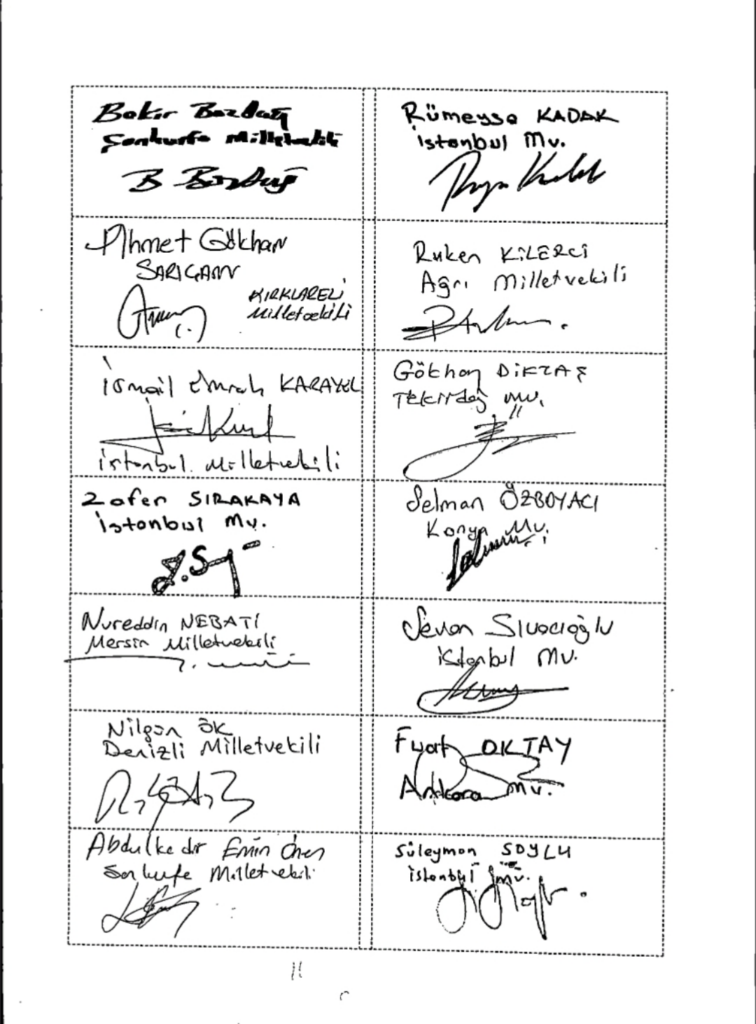 Bekir Bozdağ
Şanlıurfa Milletvekili
B Bozdağ
Rümeysa KADAK
istanbul Mv.
Ahmet Gökhan
SARIÇAM
KIRKLARELİ
Milletvekili
Ruken KİLERCİ
Ağrı Milletvekili
İsmail Emrah KARAYEL
İstanbul Milletvekili
Gökhan DİKTAŞ
TEKİRdağ Mv.
Zafer SIRAKAYA
istanbul Mv.
Selman ÖZBOYACI
Konya Mv.
Nureddin NEBATİ
Mersin Milletvekili
Sevan Sıvacıoğlu
istanbul Mv.
Nilgün ÖK
Denizli Milletvekili
Fuat OKTAY
Ankara Mv.
Abdulkadir Emin Önen
Şanlıurfa Milletvekili
Süleyman SOYLU
istanbul mv.
11